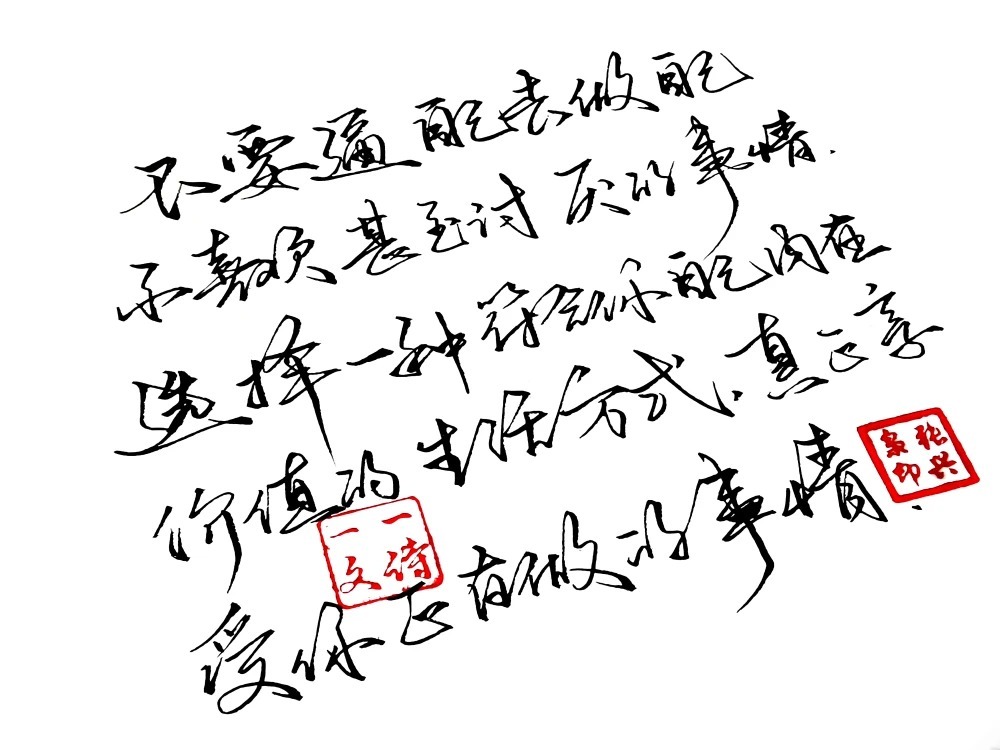 不要逼自己去做自己
不喜欢甚至讨厌的事情.
选择一种符合你自己内在
价值的生活方式.真正享
受你正在做的事情.
一诗
一文
张兴
印